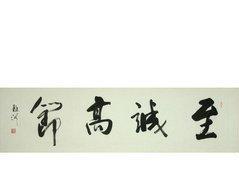 至誠高節